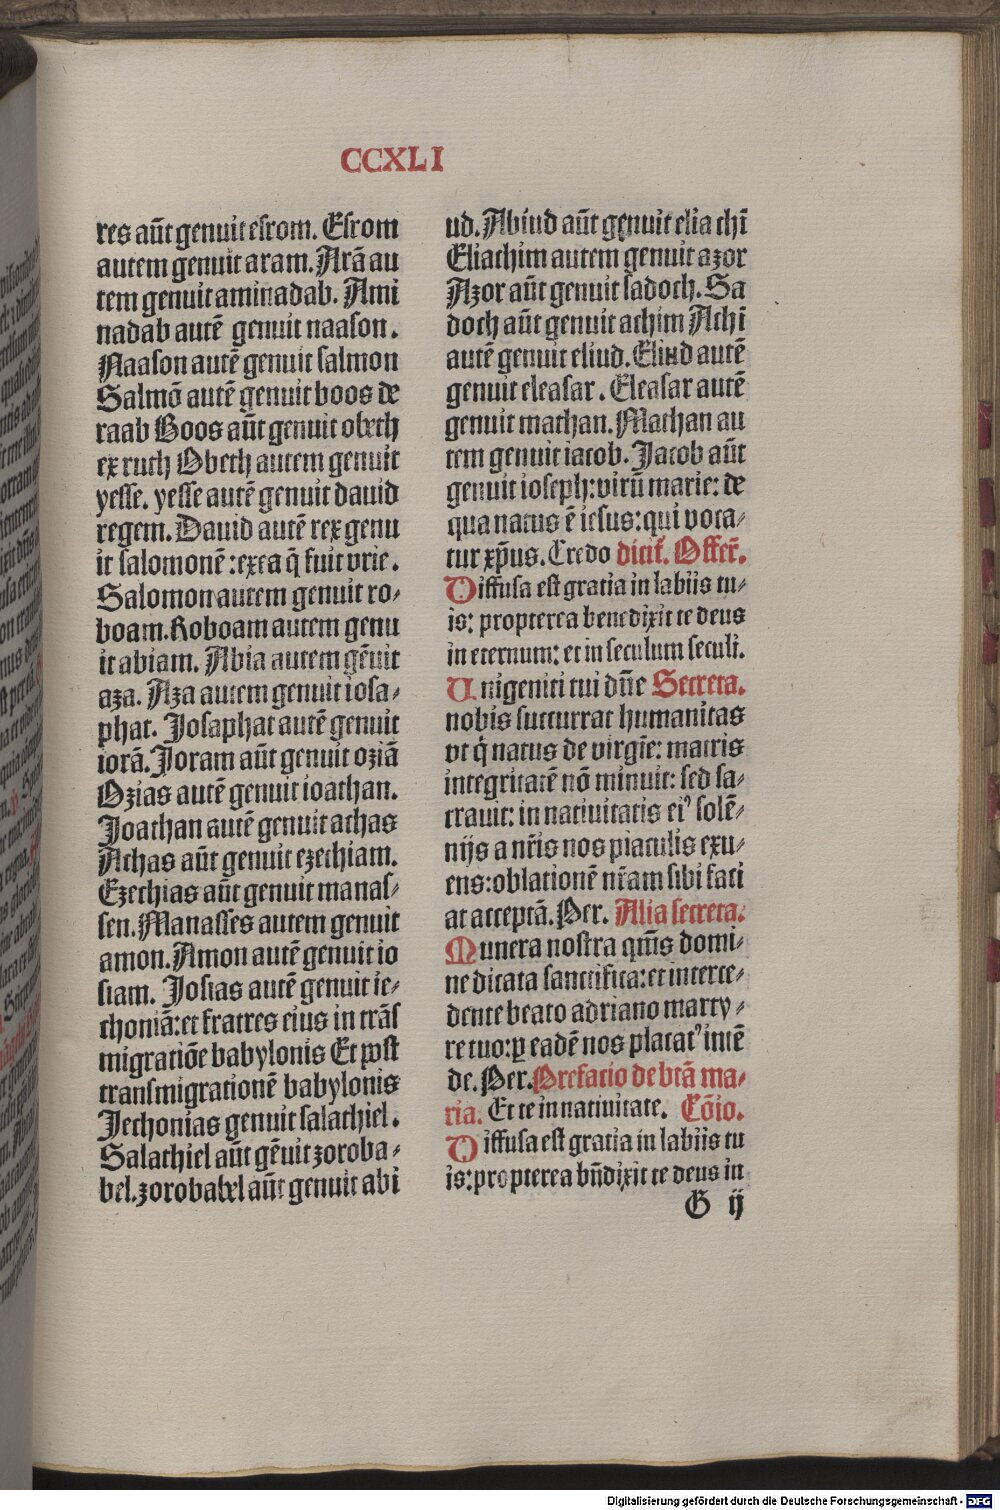 CCXLI
res aūt genuit esrom. Esrom
autem genuit aram. Arā au
tem genuit aminadab. Ami
nadab autē genuit naason.
Naason autē genuit salmon
Salmō autē genuit boos de
raab Boos aūt genuit obeth
ex ruth Obeth autem genuit
yesse. yesse autē genuit dauid
regem. Dauid autē rex genu
it salomonē: ex ea q̄ fuit vrie.
Salomon autem genuit ro⸗
boam. Roboam autem genu
it abiam. Abia autem gēuit
aza. Aza autem genuit iosa⸗
phat. Josaphat autē genuit
iorā. Joram aūt genuit oziā
Ozias autē genuit ioathan.
Joathan autē genuit achas
Achas aūt genuit ezechiam.
Ezechias aūt genuit manas⸗
sen. Manasses autem genuit
amon. Amon autē genuit io
siam. Josias autē genuit ie⸗
choniā: et fratres eius in trās
migratiōe babylonis Et post
transmigrationē babylonis
Jechonias genuit salathiel.
Salathiel aūt gēuit zoroba⸗
bel. zorobabel aūt genuit abi
ud. Abiud aūt genuit eliachī
Eliachim autem genuit azor
Azor aūt genuit sadoch. Sa
doch aūt genuit achim Achī
autē genuit eliud. Eliud autē
genuit eleasar. Eleasar autē
genuit mathan. Mathan au
tem genuit iacob. Jacob aūt
genuit ioseph: virū marie: de
qua natus ē iesus: qui voca⸗
tur xp̄us. Credo dicit᷑. Offer̄.
Diffusa est gratia in labiis tu⸗
is: propterea benedixit te deus
in eternum: et in seculum seculi.
Unigeniti tui dn̄e Secreta.
nobis succurrat humanitas
vt q̇ natus de virgīe: matris
integritatē nō minuit: sed sa⸗
crauit: in natiuitatis eiꝰ solē⸗
nijs a nr̄is nos piaculis exu⸗
ens: oblationē nr̄am sibi faci
at acceptā. Per. Alia secreta.
Munera nostra qm̄s domi⸗
ne dicata sanctifica: et interce⸗
dente beato adriano marty⸗
re tuo: ꝑ eadē nos placatꝰ intē
de. Per. Prefacio de btā ma⸗
ria. Et te in natiuitate. Cōio.
Diffusa est gratia in labiis tu
is: propterea bn̄dixit te deus in
G ij
Digitalisierung gefördert durch die Deutsche Forschungsgemeinschaft - DFG